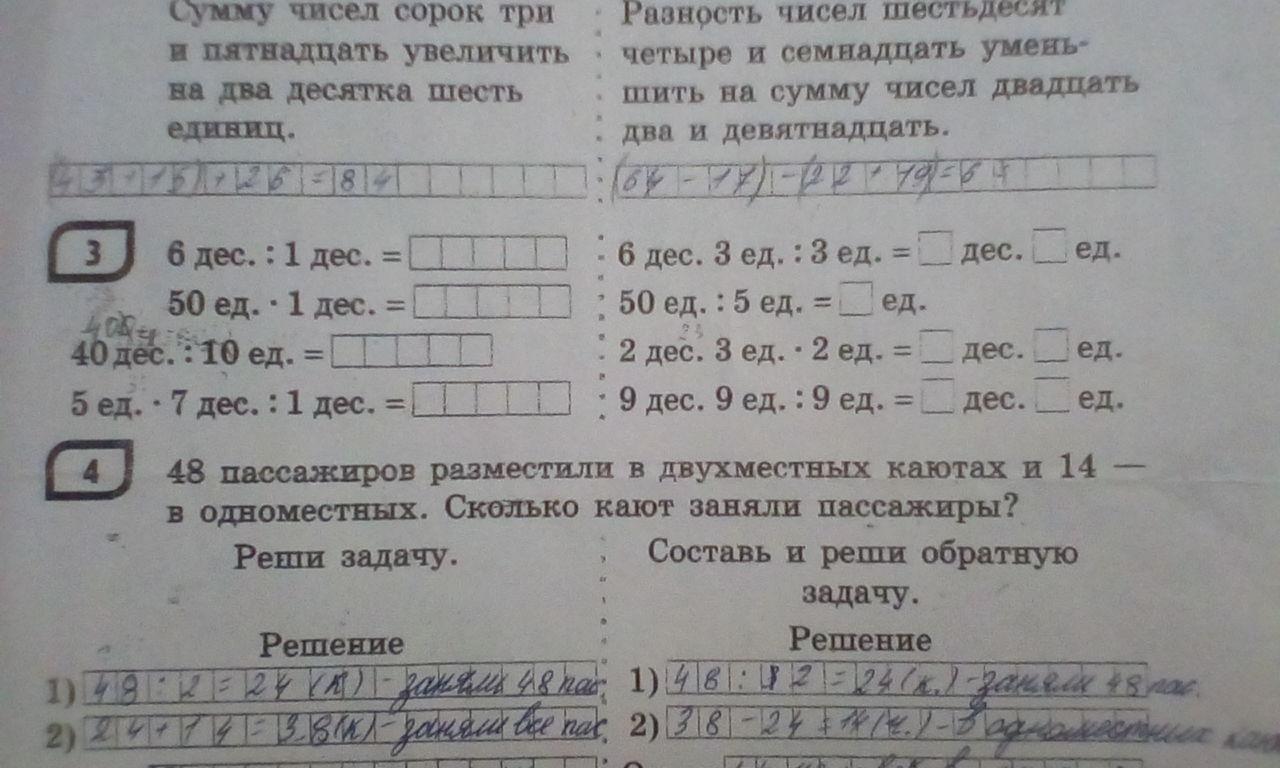 Сумму чисел сорок три
и пятнадцать увеличить
на два десятка шесть
единиц.
43+15)+26=84
Разность чисел шестьдесят
четыре и семнадцать умень-
шить на сумму чисел двадцать
два и девятнадцать.
(64-17)-(22+19)=6
3
6 дес. : 1 дес. =
50 ед. · 1 дес. =
40 дес. : 10 ед. =
5 ед. · 7 дес. : 1 дес. =
6 дес. 3 ед. : 3 ед. = дес. ед.
50 ед. : 5 ед. = ед.
2 дес. 3 ед. · 2 ед. = дес. ед.
9 дес. 9 ед. : 9 ед. = дес. ед.
4
48 пассажиров разместили в двухместных каютах и 14 —
в одноместных. Сколько кают заняли пассажиры?
Реши задачу.
Решение
1) 48:2=24(к) - заняли 48 пас.
2) 24+14=38(к) - заняли все пас.
Составь и реши обратную
задачу.
Решение
1) 48:2=24(к.) - заняли 48 пас.
2) 38-24=14(к.) - в одноместных